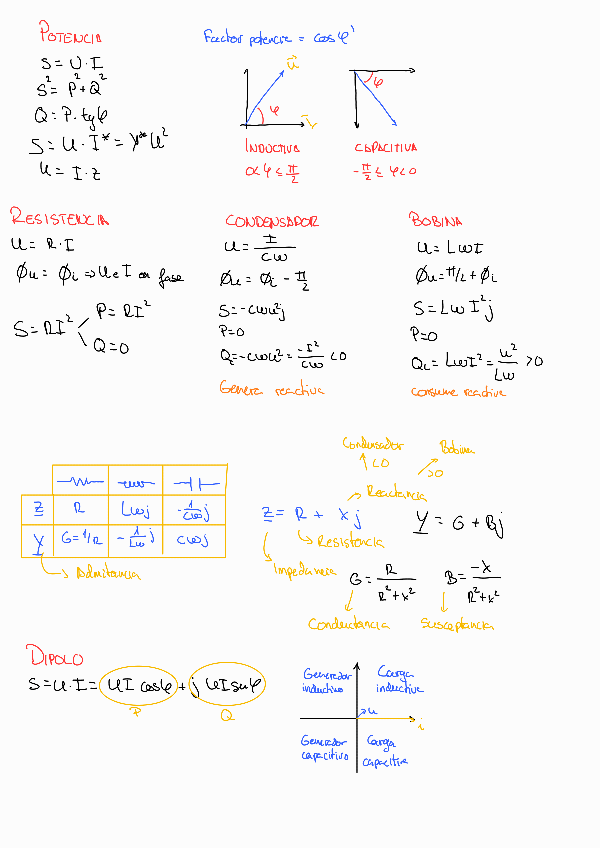 POTENCIA
S = U · I
S² = P² + Q²
Q = P · tgφ
S = U · I* = Y* U²
U = I · Z
Factor potencia = cos φ
u
φ
i
INDUCTIVA
0 < φ ≤ π/2
φ
CAPACITIVA
-π/2 ≤ φ < 0
RESISTENCIA
U = R · I
Øu = Øi ⇒ U e I en fase
S = RI²
P = RI²
Q = 0
CONDENSADOR
U = I/cω
Øu = Øi - π/2
S = -cωu²j
P = 0
Qc = -cωu² = -I²/cω < 0
Genera reactiva
BOBINA
U = LωI
Øu = π/2 + Øi
S = Lω I²j
P = 0
QL = LωI² = u²/Lω > 0
consume reactiva
Z R Lωj -1/cω j
Y G = 1/R -1/Lω j cωj
Admitancia
Condensador Bobina
<0 >0
Reactancia
Z = R + X j
Resistencia
Impedancia
Y = G + Bj
G = R/R²+X²
B = -X/R²+X²
Conductancia Susceptancia
DIPOLO
S = U · I = UI cosφ + j UI senφ
P Q
Generador inductivo
Carga inductiva
u
i
Generador capacitivo
Carga capacitiva